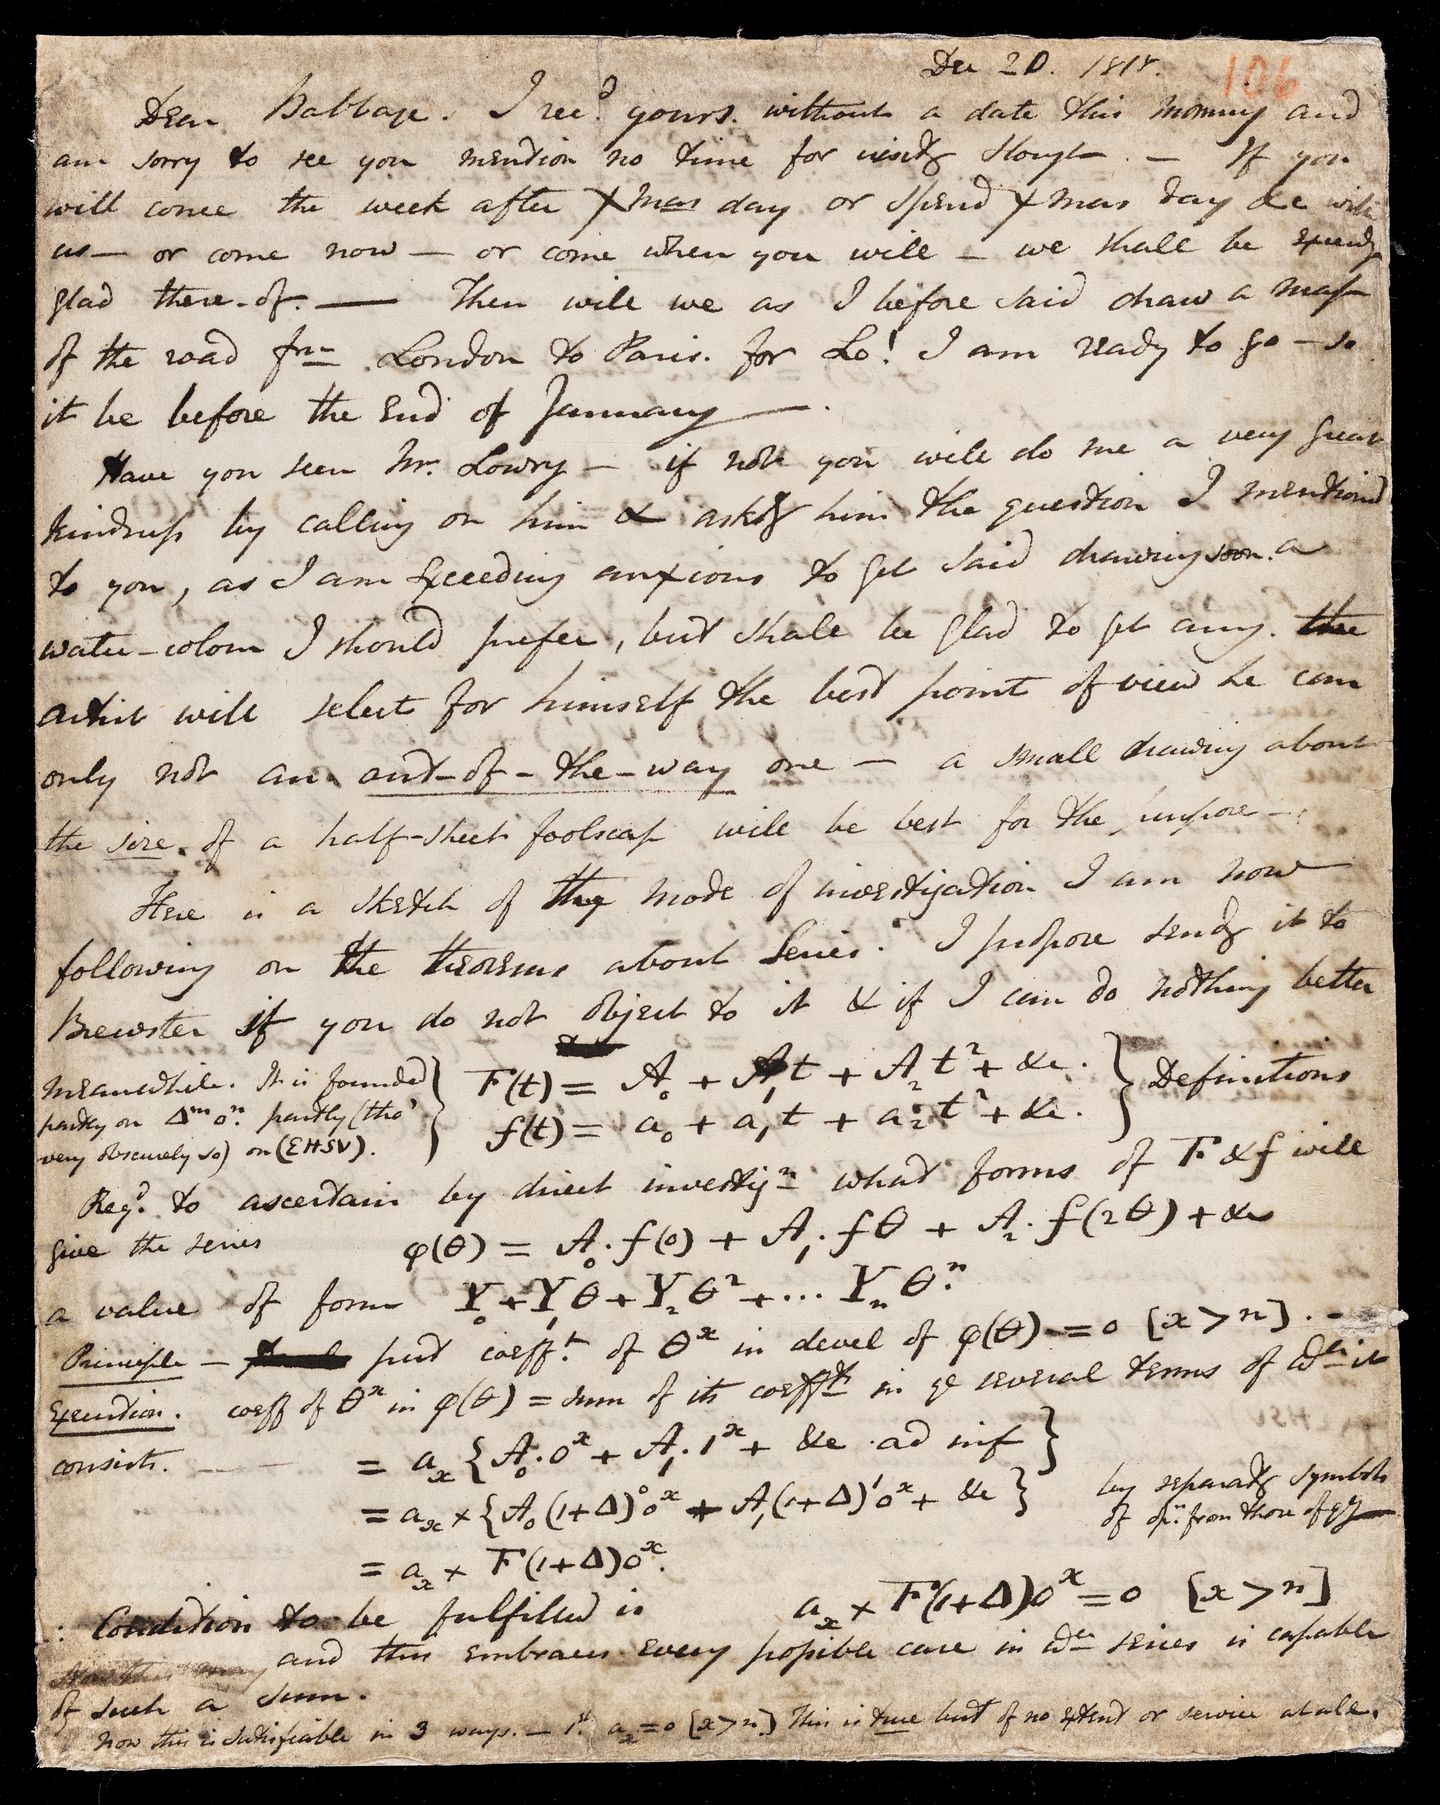 Dec 20. 1818.
106
Dear Babbage. I recd. yours without a date this morning and
am sorry to see you mention no time for visitg Slough. — If you
will come the week after Xmas day or spend Xmas day &c with
us — or come now — or come when you will — we shall be exceedg
glad there-of. — Then will we as I before said draw a map
of the road frm London to Paris. for Lo! I am ready to go — so
it be before the End of January —.
Have you seen Mr. Lowry — if not you will do me a very great
kindness by calling on him & askg him the question I mentiond
to you, as I am Exceeding anxious to get said drawing soon. a
water-colour I should prefer, but shall be glad to get any. the
artist will select for himself the best point of view he can
only not an out-of-the-way one — a small drawing about
the size of a half-sheet foolscap will be best for the purpose —
Here is a sketch of the mode of investigation I am now
following on the theorems about Series. I propose sendg it to
Brewster if you do not object to it & if I can do nothing better
meanwhile. It is founded
partly on Δᵐ0ⁿ. partly (tho'
very obscurely so) on (EHSV).
F(t) = A₀ + A₁t + A₂t² + &c.
f(t) = a₀ + a₁t + a₂t² + &c.
} Definitions
Reqd. to ascertain by direct investign what forms of F & f will
give the series φ(θ) = A₀.f(0) + A₁.fθ + A₂.f(2θ) + &c
a value of form Y₀ + Y₁θ + Y₂θ² + ... Yₙθⁿ.
Principle — put coefft. of θˣ in devel of φ(θ) = 0 [x > n]. —
Execution. coeff of θˣ in φ(θ) = sum of its coeffts in ye several terms of wch it
consists. — = aₓ{A₀.0ˣ + A₁.1ˣ + &c. ad inf}
= aₓ × {A₀(1+Δ)⁰0ˣ + A₁(1+Δ)¹0ˣ + &c} by separatg symbols
of opn. from those of qy
= aₓ × F(1+Δ)0ˣ.
∴ Condition to be fulfilled is aₓ × F(1+Δ)0ˣ = 0 [x > n]
and this embraces every possible case in wch series is capable
of such a sum.
Now this is satisfiable in 3 ways. — 1st. aₓ = 0 [x > n] This is true but of no extent or service at all.